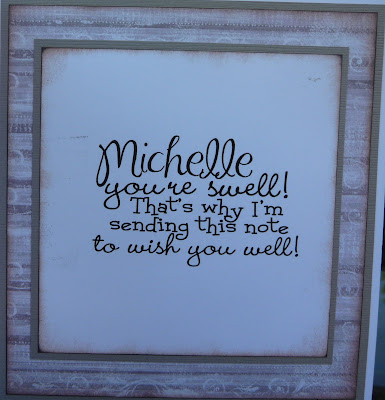 Michelle
you're swell!
That's why I'm
sending this note
to wish you well!